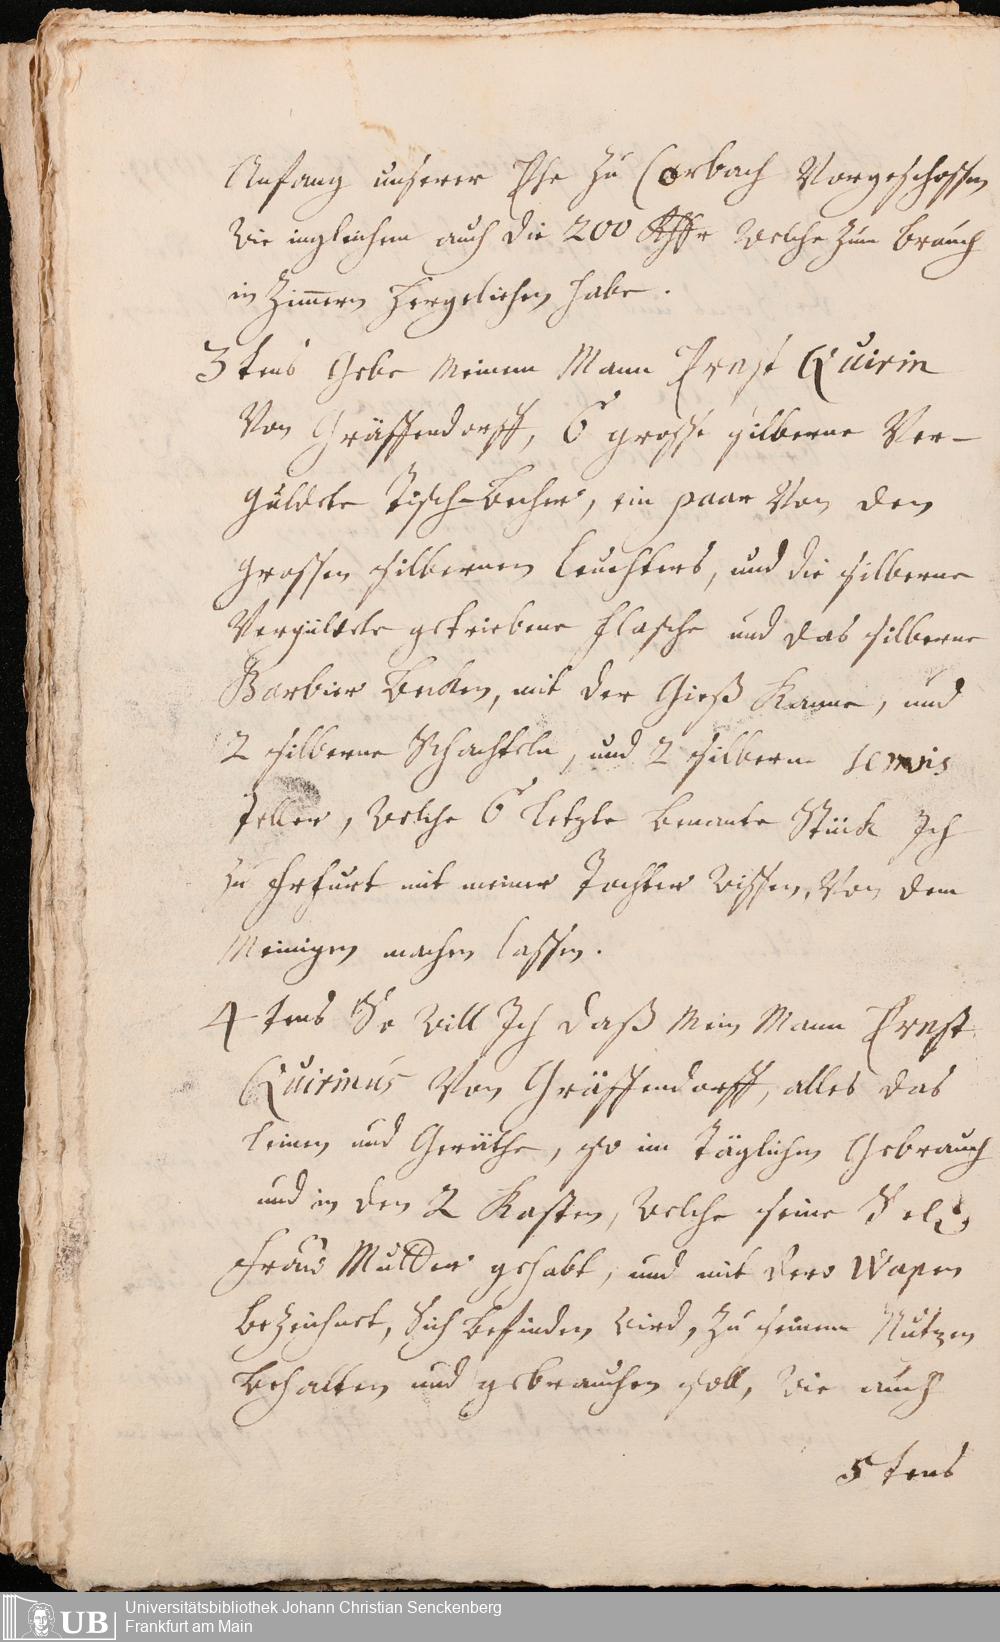 Anfang unserer Ehe zu Corbach Vorgeschossen
Wie ingleichen auch die 200 Welche zum brauch
in Zimmern hergeliehen habe.
3 tens Gebe Meinem Mann Ernst Quirin
Von Gräffendorff, 6 grosse silberne Ver-
güldete Tisch-becher, ein paar Von den
grossen silbernen Leuchters, und die silberne
Vergüldete getriebene flasche und das silberne
Barbier becken, mit der Gieß Kanne, und
2 silberne Schachteln, und 2 silberne servis
Teller, Welche 6 letzte benante Stück Ich
zu Erfurt mit meiner Tochter Wissen, Von dem
Meinigen machen lassen.
4 tens So Will Ich daß Mein Mann Ernst
Quirinus Von Gräffendorff, alles das
leinen und Geräthe, so im Täglichen Gebrauch
und in den 2 Kasten, Welche seine Sel:
Frau Mutter gehabt, und mit dero Wapen
bezeichnet, Sich befinden Wird, Zu seinem Nutzen
behalten und gebrauchen soll, Wie auch
5 tens
UB
Universitätsbibliothek Johann Christian Senckenberg
Frankfurt am Main